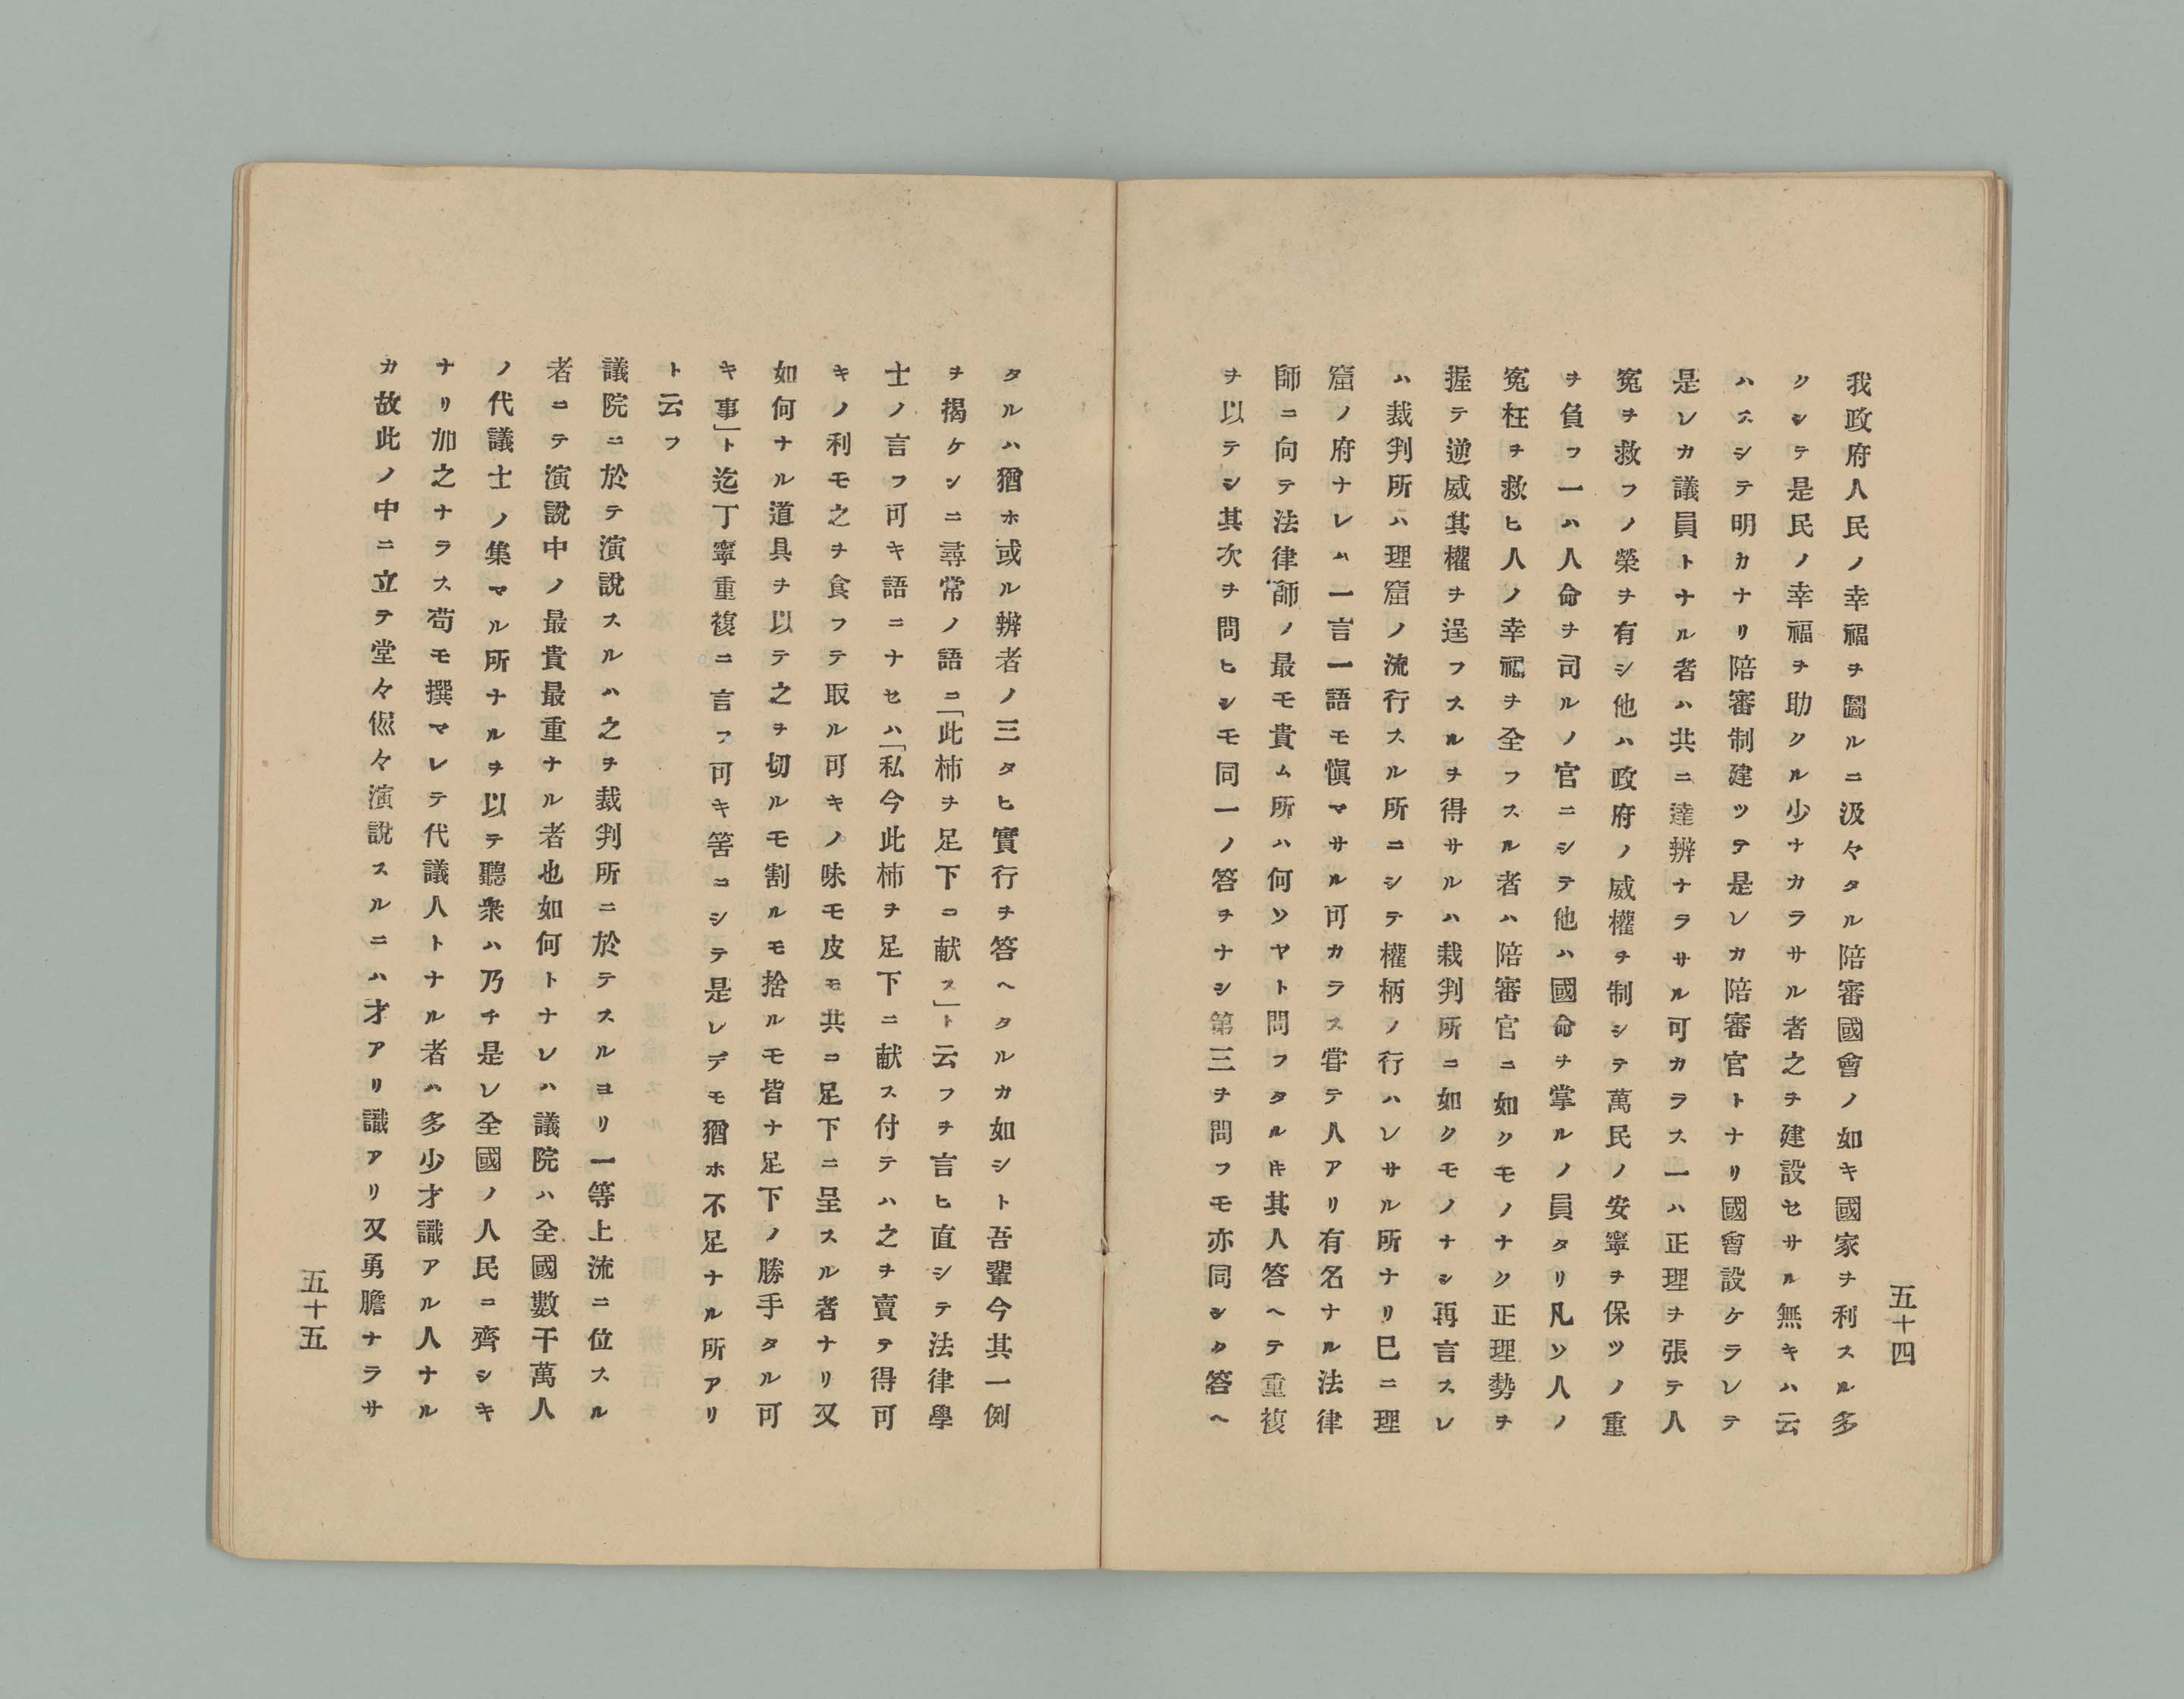 五十四
我政府人民ノ幸福ヲ圖ルニ汲々タル陪審國會ノ如キ國家ヲ利スル多
クシテ是民ノ幸福ヲ助クル少ナカラサル者之ヲ建設セサル無キハ云
ハスシテ明カナリ陪審制建ツテ是レカ陪審官トナリ國會設ケラレテ
是レカ議員トナル者ハ共ニ達辨ナラサル可カラス一ハ正理ヲ張テ人
冤ヲ救フノ榮ヲ有シ他ハ政府ノ威權ヲ制シテ萬民ノ安寧ヲ保ツノ重
ヲ負フ一ハ人命ヲ司ルノ官ニシテ他ハ國命ヲ掌ルノ員タリ凡ソ人ノ
冤枉ヲ救ヒ人ノ幸福ヲ全フスル者ハ陪審官ニ如クモノナク正理勢ヲ
握テ逆威其權ヲ逞フスルヲ得サルハ裁判所ニ如クモノナシ再言スレ
ハ裁判所ハ理窟ノ流行スル所ニシテ權柄ノ行ハレサル所ナリ巳ニ理
窟ノ府ナレハ一言一語モ愼マサル可カラス甞テ人アリ有名ナル法律
師ニ向テ法律師ノ最モ貴ム所ハ何ソヤト問フタルキ其人答ヘテ重複
ヲ以テシ其次ヲ問ヒシモ同一ノ答ヲナシ第三ヲ問フモ亦同シク答ヘ
タルハ猶ホ或ル辨者ノ三タヒ實行ヲ答ヘタルカ如シト吾輩今其一例
ヲ揭ケンニ尋常ノ語ニ「此柿ヲ足下ニ献ス」ト云フヲ言ヒ直シテ法律學
士ノ言フ可キ語ニナセハ「私今此柿ヲ足下ニ献ス付テハ之ヲ賣テ得可
キノ利モ之ヲ食フテ取ル可キノ味モ皮モ共ニ足下ニ呈スル者ナリ又
如何ナル道具ヲ以テ之ヲ切ルモ割ルモ捨ルモ皆ナ足下ノ勝手タル可
キ事」ト迄丁寧重複ニ言フ可キ筈ニシテ是レデモ猶ホ不足ナル所アリ
ト云フ
議院ニ於テ演說スルハ之ヲ裁判所ニ於テスルヨリ一等上流ニ位スル
者ニテ演說中ノ最貴最重ナル者也如何トナレハ議院ハ全國數千萬人
ノ代議士ノ集マル所ナルヲ以テ聽衆ハ乃チ是レ全國ノ人民ニ齊シキ
ナリ加之ナラス苟モ撰マレテ代議人トナル者ハ多少才識アル人ナル
カ故此ノ中ニ立テ堂々侃々演說スルニハ才アリ識アリ又勇膽ナラサ
五十五